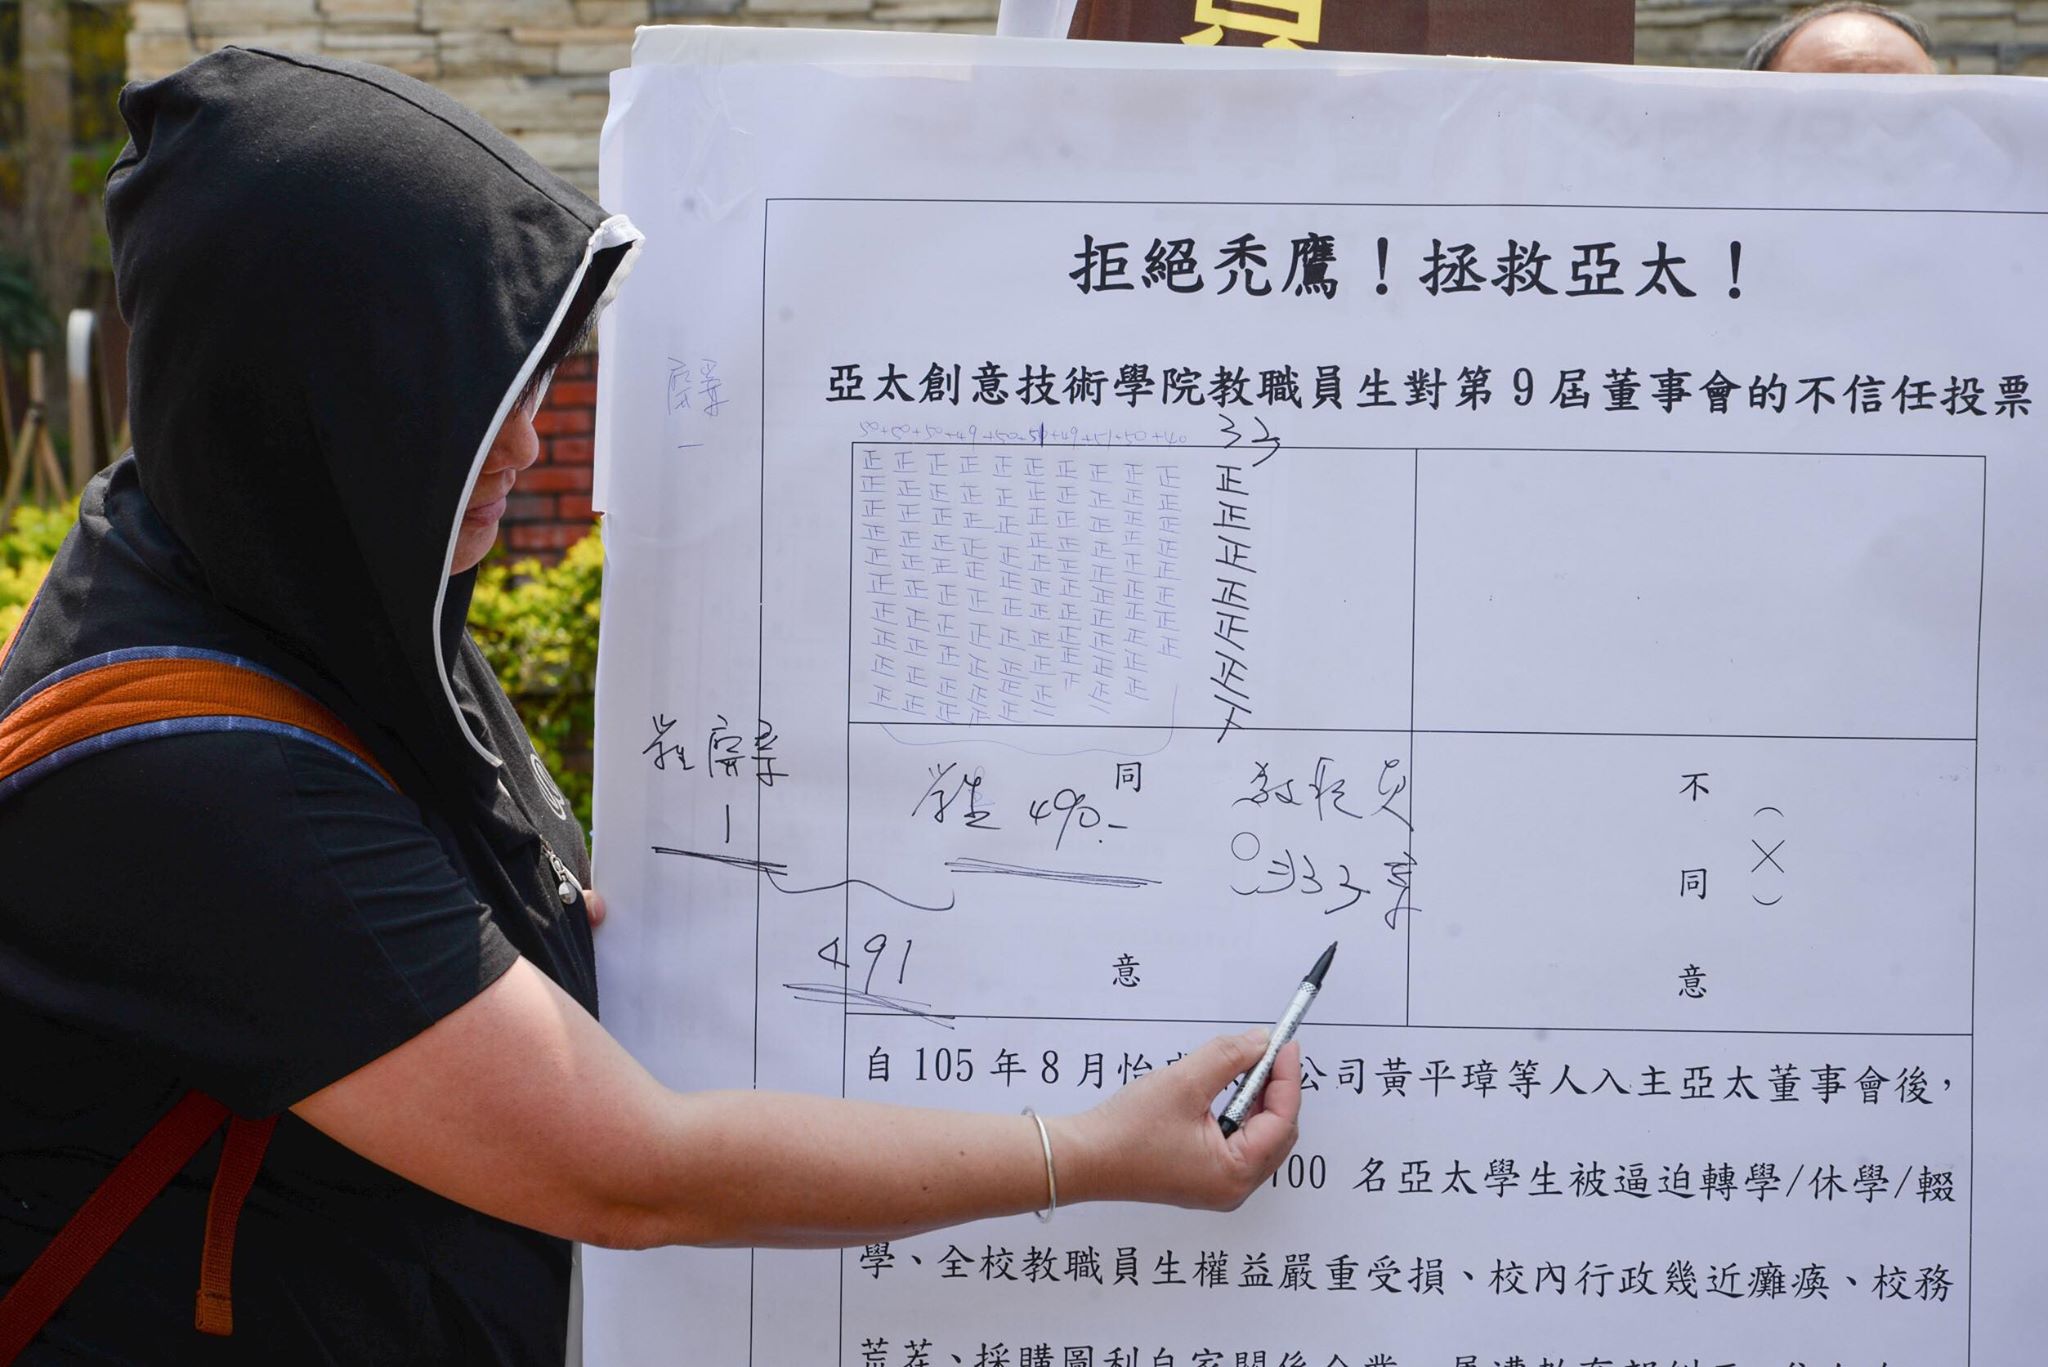 員
拒絕禿鷹！拯救亞太！
亞太創意技術學院教職員生對第9屆董事會的不信任投票
廢票
一
50+50+50+49+50+51+49+51+50+40
32
正正正正正正正正正正
同意
不同意
(X)
學生廢票
1
學生 490.-
教職員
32票
491
自105年8月怡 公司黃平璋等人入主亞太董事會後，
100 名亞太學生被逼迫轉學/休學/輟
學、全校教職員生權益嚴重受損、校內行政幾近癱瘓、校務
荒蕪、採購圖利自家關係企業